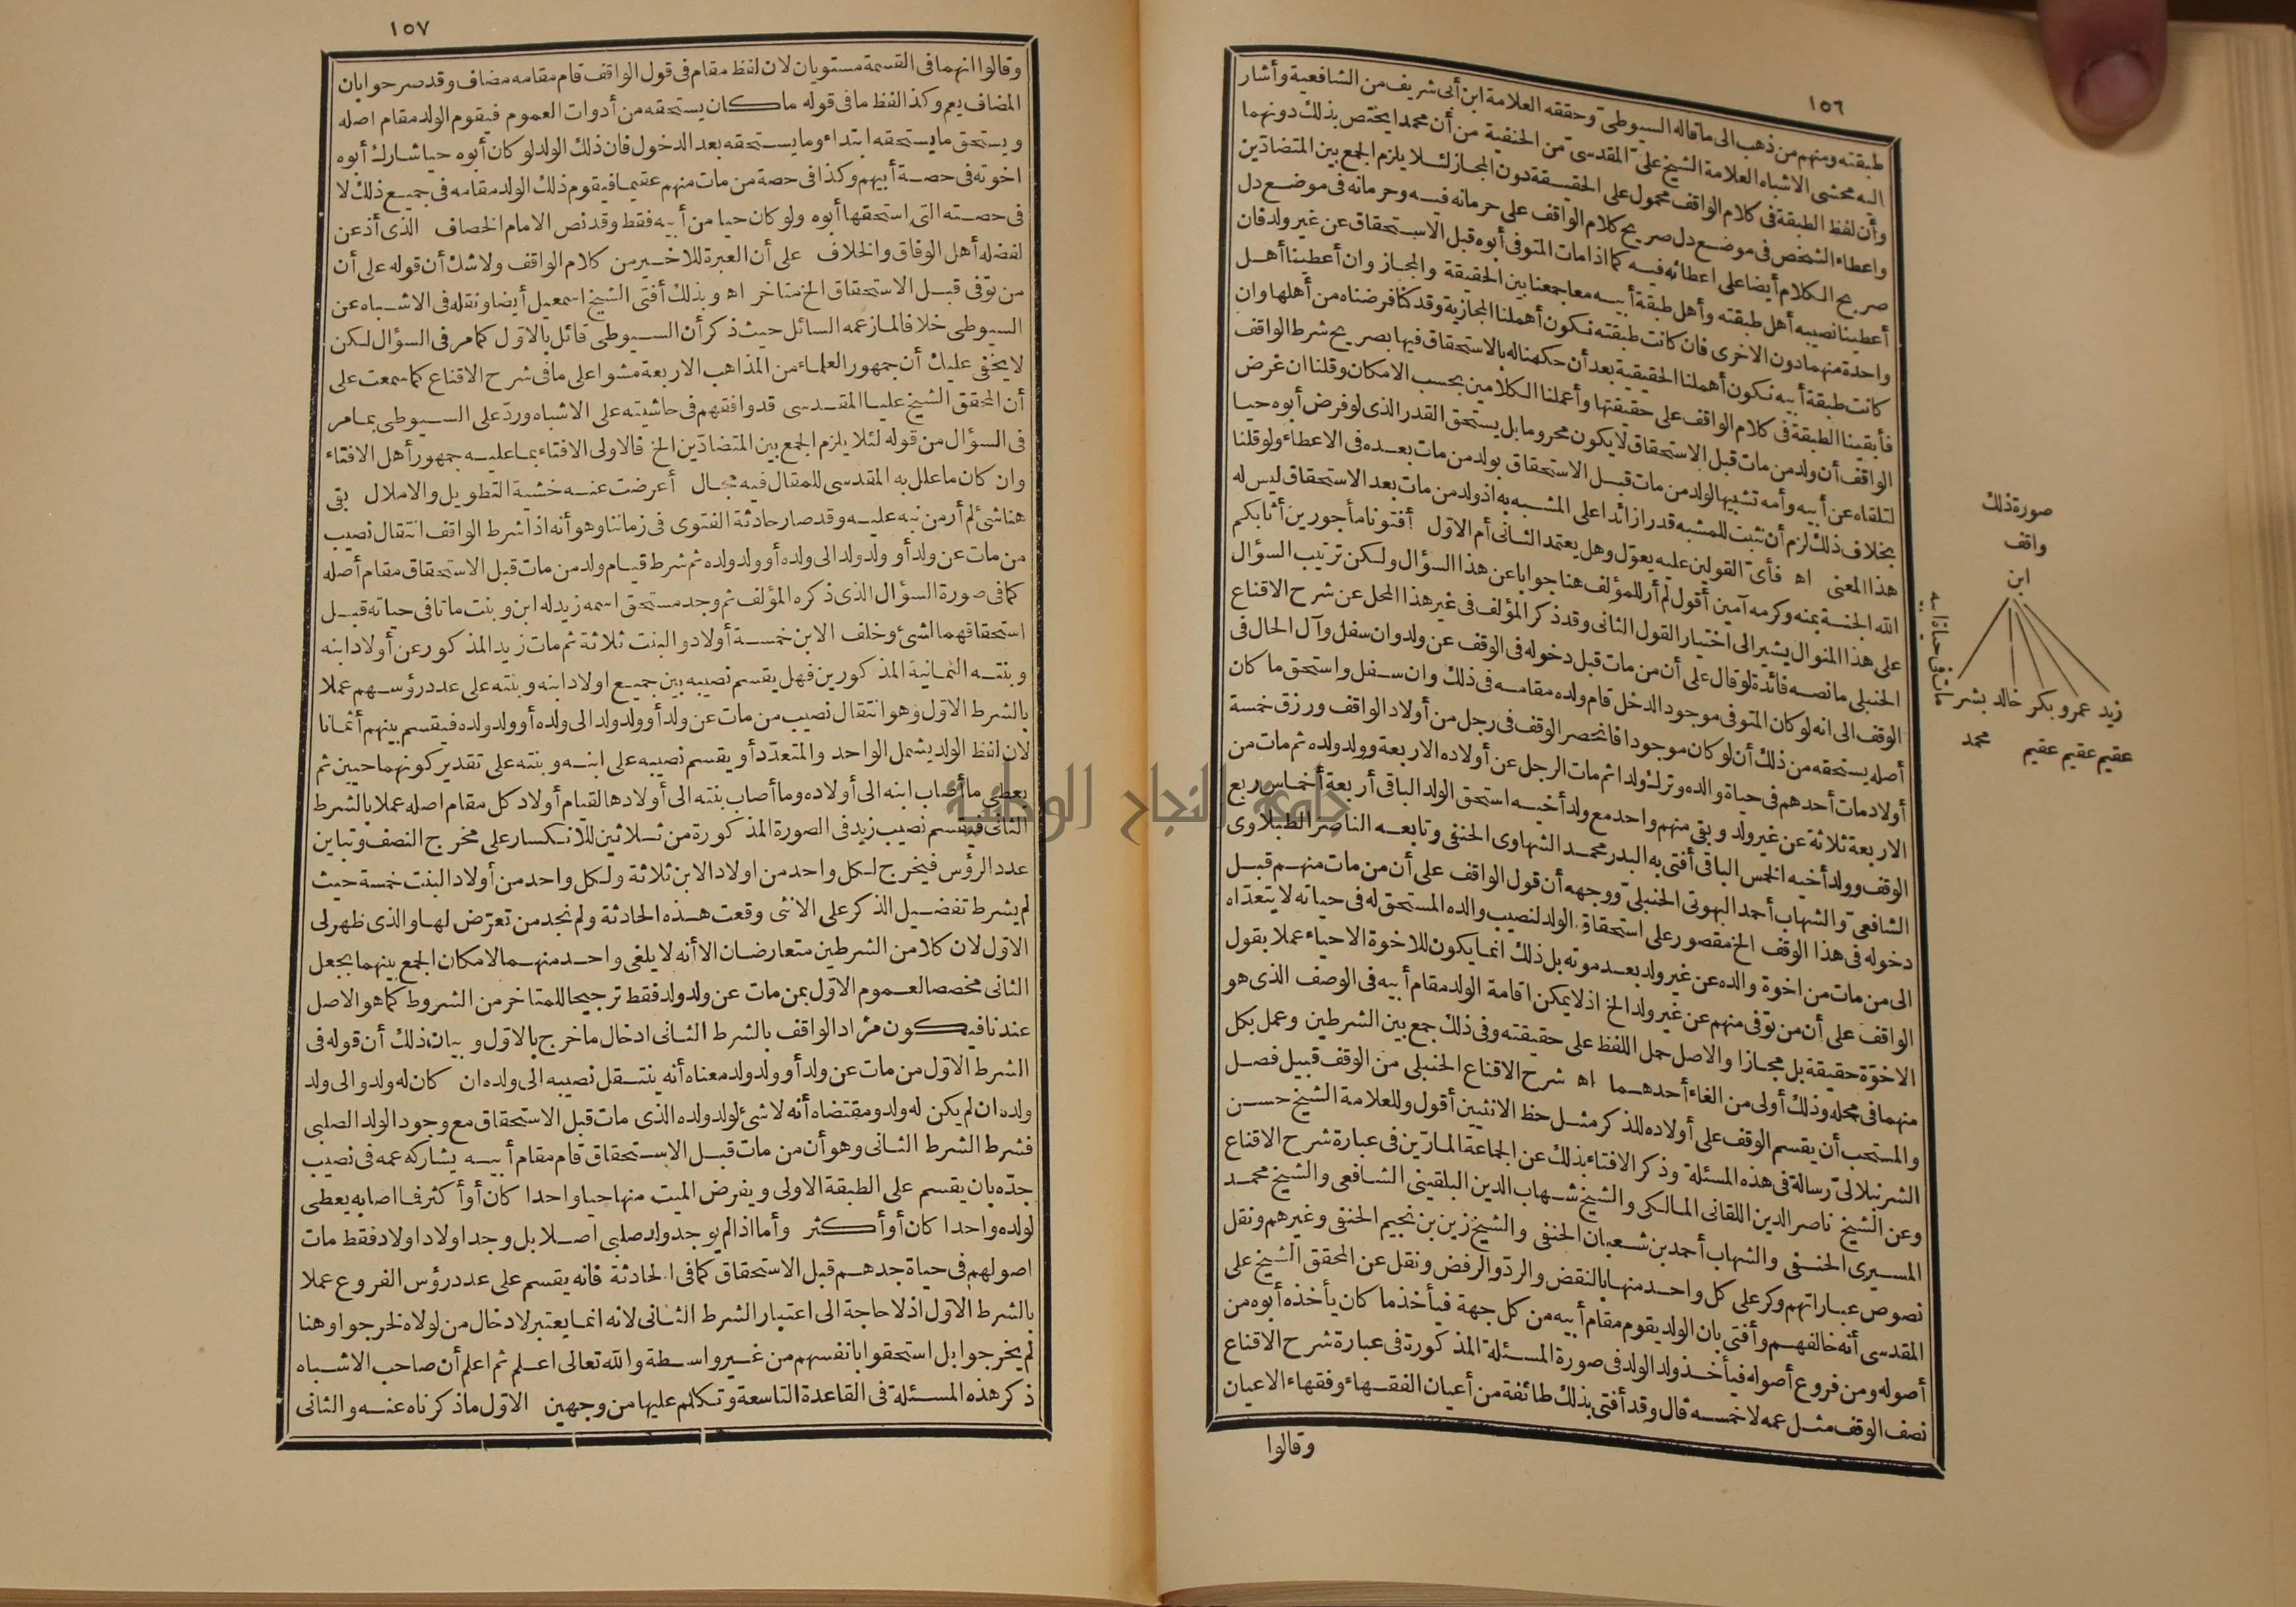 ١٥٦
طبقته ومنهم من ذهب الى ما قاله السيوطى وحققه العلامة ابن أبى شريف من الشافعية وأشار
اليه محشى الاشباه العلامة الشيخ على المقدسى من الحنفية من أن محمدا يختص بذلك دونهما
وأن لفظ الطبقة فى كلام الواقف محمول على الحقيقة دون المجاز لئلا يلزم الجمع بين المتضادّين
واعطاء الشخص فى موضع دل صريح كلام الواقف على حرمانه فيه وحرمانه فى موضع دل
صريح الكلام أيضا على اعطائه فيه كما اذا مات المتوفى أبوه قبل الاستحقاق عن غير ولد فان
أعطينا نصيبه أهل طبقته وأهل طبقة أبيه معا جمعنا بين الحقيقة والمجاز وان أعطينا أهل
واحدة منهما دون الاخرى فان كانت طبقته نكون أهملنا المجازية وقد كنا فرضناه من أهلها وان
كانت طبقة أبيه نكون أهملنا الحقيقية بعد أن حكمنا له بالاستحقاق فيها بصريح شرط الواقف
فأبقينا الطبقة فى كلام الواقف على حقيقتها وأعملنا الكلامين بحسب الامكان وقلنا ان غرض
الواقف أن ولد من مات قبل الاستحقاق لا يكون محروما بل يستحق القدر الذى لو فرض أبوه حيا
لتلقاه عن أبيه وأمه تشبيها لولد من مات قبل الاستحقاق بولد من مات بعده فى الاعطاء ولو قلنا
بخلاف ذلك لزم أن نثبت للمشبه قدرا زائدا على المشبه به اذ ولد من مات بعد الاستحقاق ليس له
هذا المعنى اه فأى القولين عليه يعوّل وهل يعتمد الثانى أم الاول أفتونا مأجورين أثابكم
الله الجنة بمنه وكرمه آمين أقول لم أر للمؤلف هنا جوابا عن هذا السؤال ولكن ترتيب السؤال
على هذا المنوال يشير الى اختيار القول الثانى وقد ذكر المؤلف فى غير هذا المحل عن شرح الاقناع
الحنبلى ما نصه فائدة لو قال على أن من مات قبل دخوله فى الوقف عن ولد وان سفل وآل الحال فى
الوقف الى انه لو كان المتوفى موجودا لدخل قام ولده مقامه فى ذلك وان سفل واستحق ما كان
أصله يستحقه من ذلك أن لو كان موجودا فانحصر الوقف فى رجل من أولاد الواقف ورزق خمسة
أولاد مات أحدهم فى حياة والده وترك ولدا ثم مات الرجل عن أولاده الاربعة وولد ولده ثم مات من
الاربعة ثلاثة عن غير ولد وبقى منهم واحد مع ولد أخيه استحق الولد الباقى أربعة أخماس ريع
الوقف وولد أخيه الخمس الباقى أفتى به البدر محمد الشهاوى الحنفى وتابعه الناصر الطبلاوى
الشافعىّ والشهاب أحمد البهوتى الحنبلىّ ووجهه أن قول الواقف على أن من مات منهم قبل
دخوله فى هذا الوقف الخ مقصور على استحقاق الولد لنصيب والده المستحق له فى حياته لا يتعدّاه
الى من مات من اخوة والده عن غير ولد بعد موته بل ذلك انما يكون للاخوة الاحياء عملا بقول
الواقف على أن من توفى منهم عن غير ولد الخ اذ لا يمكن اقامة الولد مقام أبيه فى الوصف الذى هو
الاخوّة حقيقة بل مجازا والاصل حمل اللفظ على حقيقته وفى ذلك جمع بين الشرطين وعمل بكل
منهما فى محله وذلك أولى من الغاء أحدهما اه شرح الاقناع الحنبلى من الوقف قبيل فصل
والمستحب أن يقسم الوقف على أولاده للذكر مثل حظ الانثيين أقول وللعلامة الشيخ حسن
الشرنبلالىّ رسالة فى هذه المسئلة وذكر الافتاء بذلك عن الجماعة المارّين فى عبارة شرح الاقناع
وعن الشيخ ناصر الدين اللقانى المالكى والشيخ شهاب الدين البلقينى الشافعى والشيخ محمد
المسيرى الحنفى والشهاب أحمد بن شعبان الحنفى والشيخ زين بن نجيم الحنفى وغيرهم ونقل
نصوص عباراتهم وكر على كل واحد منها بالنقض والردّ والرفض ونقل عن المحقق الشيخ على
المقدسى أنه خالفهم وأفتى بان الولد يقوم مقام أبيه من كل جهة فيأخذ ما كان يأخذه أبوه من
أصوله ومن فروع أصوله فيأخذ ولد الولد فى صورة المسئلة المذكورة فى عبارة شرح الاقناع
نصف الوقف مثل عمه لا خمسه قال وقد أفتى بذلك طائفة من أعيان الفقهاء وفقهاء الاعيان
وقالوا
صورة ذلك
واقف
ابن
زيد عمرو بكر خالد بشر
مات فى حياة ابيه
عقيم عقيم عقيم محمد
١٥٧
وقالوا انهما فى القسمة مستويان لان لفظ مقام فى قول الواقف قام مقامه مضاف وقد صرحوا بان
المضاف يعم وكذا لفظ ما فى قوله ما كان يستحقه من أدوات العموم فيقوم الولد مقام اصله
ويستحق ما يستحقه ابتداء وما يستحقه بعد الدخول فان ذلك الولد لو كان أبوه حيا شارك أبوه
اخوته فى حصة أبيهم وكذا فى حصة من مات منهم عقيما فيقوم ذلك الولد مقامه فى جميع ذلك لا
فى حصته التى استحقها أبوه ولو كان حيا من أبيه فقط وقد نص الامام الخصاف الذى أذعن
لفضله أهل الوفاق والخلاف على أن العبرة للاخير من كلام الواقف ولا شك أن قوله على أن
من توفى قبل الاستحقاق الخ متاخر اه وبذلك أفتى الشيخ اسمعيل أيضا ونقله فى الاشباه عن
السيوطى خلافا لما زعمه السائل حيث ذكر أن السيوطى قائل بالاول كما مر فى السؤال لكن
لا يخفى عليك أن جمهور العلماء من المذاهب الاربعة مشوا على ما فى شرح الاقناع كما سمعت على
أن المحقق الشيخ عليا المقدسى قد وافقهم فى حاشيته على الاشباه وردّ على السيوطى بما مر
فى السؤال من قوله لئلا يلزم الجمع بين المتضادّين الخ فالاولى الافتاء بما عليه جمهور أهل الافتاء
وان كان ما علل به المقدسى للمقال فيه مجال أعرضت عنه خشية التطويل والاملال بقى
هنا شئ لم أر من نبه عليه وقد صار حادثة الفتوى فى زماننا وهو أنه اذا شرط الواقف انتقال نصيب
من مات عن ولد أو ولد ولد الى ولده أو ولد ولده ثم شرط قيام ولد من مات قبل الاستحقاق مقام أصله
كما فى صورة السؤال الذى ذكره المؤلف ثم وجد مستحق اسمه زيد له ابن وبنت ماتا فى حياته قبل
استحقاقهما لشئ وخلف الابن خمسة أولاد والبنت ثلاثة ثم مات زيد المذكور عن أولاد ابنه
وبنته الثمانية المذكورين فهل يقسم نصيبه بين جميع اولاد ابنه وبنته على عدد رؤسهم عملا
بالشرط الاول وهو انتقال نصيب من مات عن ولد أو ولد ولد الى ولده أو ولد ولده فيقسم بينهم أثمانا
لان لفظ الولد يشمل الواحد والمتعدّد أو يقسم نصيبه على ابنه وبنته على تقدير كونهما حيين ثم
يعطى ما أصاب ابنه الى أولاده وما أصاب بنته الى أولادها لقيام أولاد كل مقام اصله عملا بالشرط
الثانى فيقسم نصيب زيد فى الصورة المذكورة من ثلاثين للانكسار على مخرج النصف وتباين
عدد الرؤس فيخرج لكل واحد من اولاد الابن ثلاثة ولكل واحد من أولاد البنت خمسة حيث
لم يشرط تفضيل الذكر على الانثى وقعت هذه الحادثة ولم نجد من تعرّض لها والذى ظهر لى
الاول لان كلا من الشرطين متعارضان الا أنه لا يلغى واحد منهما لامكان الجمع بينهما بجعل
الثانى مخصصا لعموم الاول بمن مات عن ولد ولد فقط ترجيحا للمتاخر من الشروط كما هو الاصل
عندنا فيكون مراد الواقف بالشرط الثانى ادخال ما خرج بالاول وبيان ذلك أن قوله فى
الشرط الاول من مات عن ولد أو ولد ولد معناه أنه ينتقل نصيبه الى ولده ان كان له ولد والى ولد
ولده ان لم يكن له ولد ومقتضاه أنه لا شئ لولد ولده الذى مات قبل الاستحقاق مع وجود الولد الصلبى
فشرط الشرط الثانى وهو أن من مات قبل الاستحقاق قام مقام أبيه يشاركه عمه فى نصيب
جدّه بان يقسم على الطبقة الاولى ويفرض الميت منها حيا واحدا كان أو أكثر فما اصابه يعطى
لولده واحدا كان أو أكثر وأما اذا لم يوجد ولد صلبى اصلا بل وجد اولاد اولاد فقط مات
اصولهم فى حياة جدهم قبل الاستحقاق كما فى الحادثة فانه يقسم على عدد رؤس الفروع عملا
بالشرط الاول اذ لا حاجة الى اعتبار الشرط الثانى لانه انما يعتبر لادخال من لولاه لخرجوا وهنا
لم يخرجوا بل استحقوا بانفسهم من غير واسطة والله تعالى اعلم ثم اعلم أن صاحب الاشباه
ذكر هذه المسئلة فى القاعدة التاسعة وتكلم عليها من وجهين الاول ما ذكرناه عنه والثانى
جامعة النجاح الوطنية